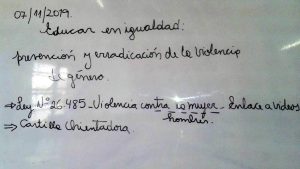 07/11/2019.
Educar en igualdad:
prevención y erradicación de la Violencia
de género.
⇒ Ley N° 26.485 - Violencia contra la mujer - Enlace a videos
hombres.
⇒ Cartilla Orientadora.